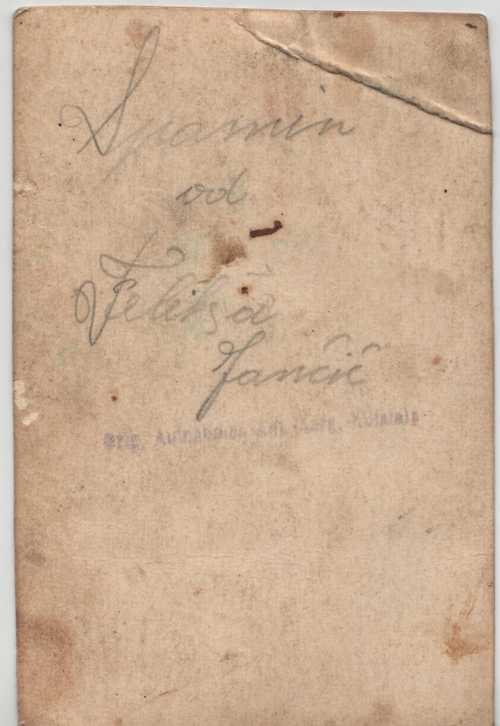 Spamin
od
Feliksa
Jančič
Orig. Aufnahmen